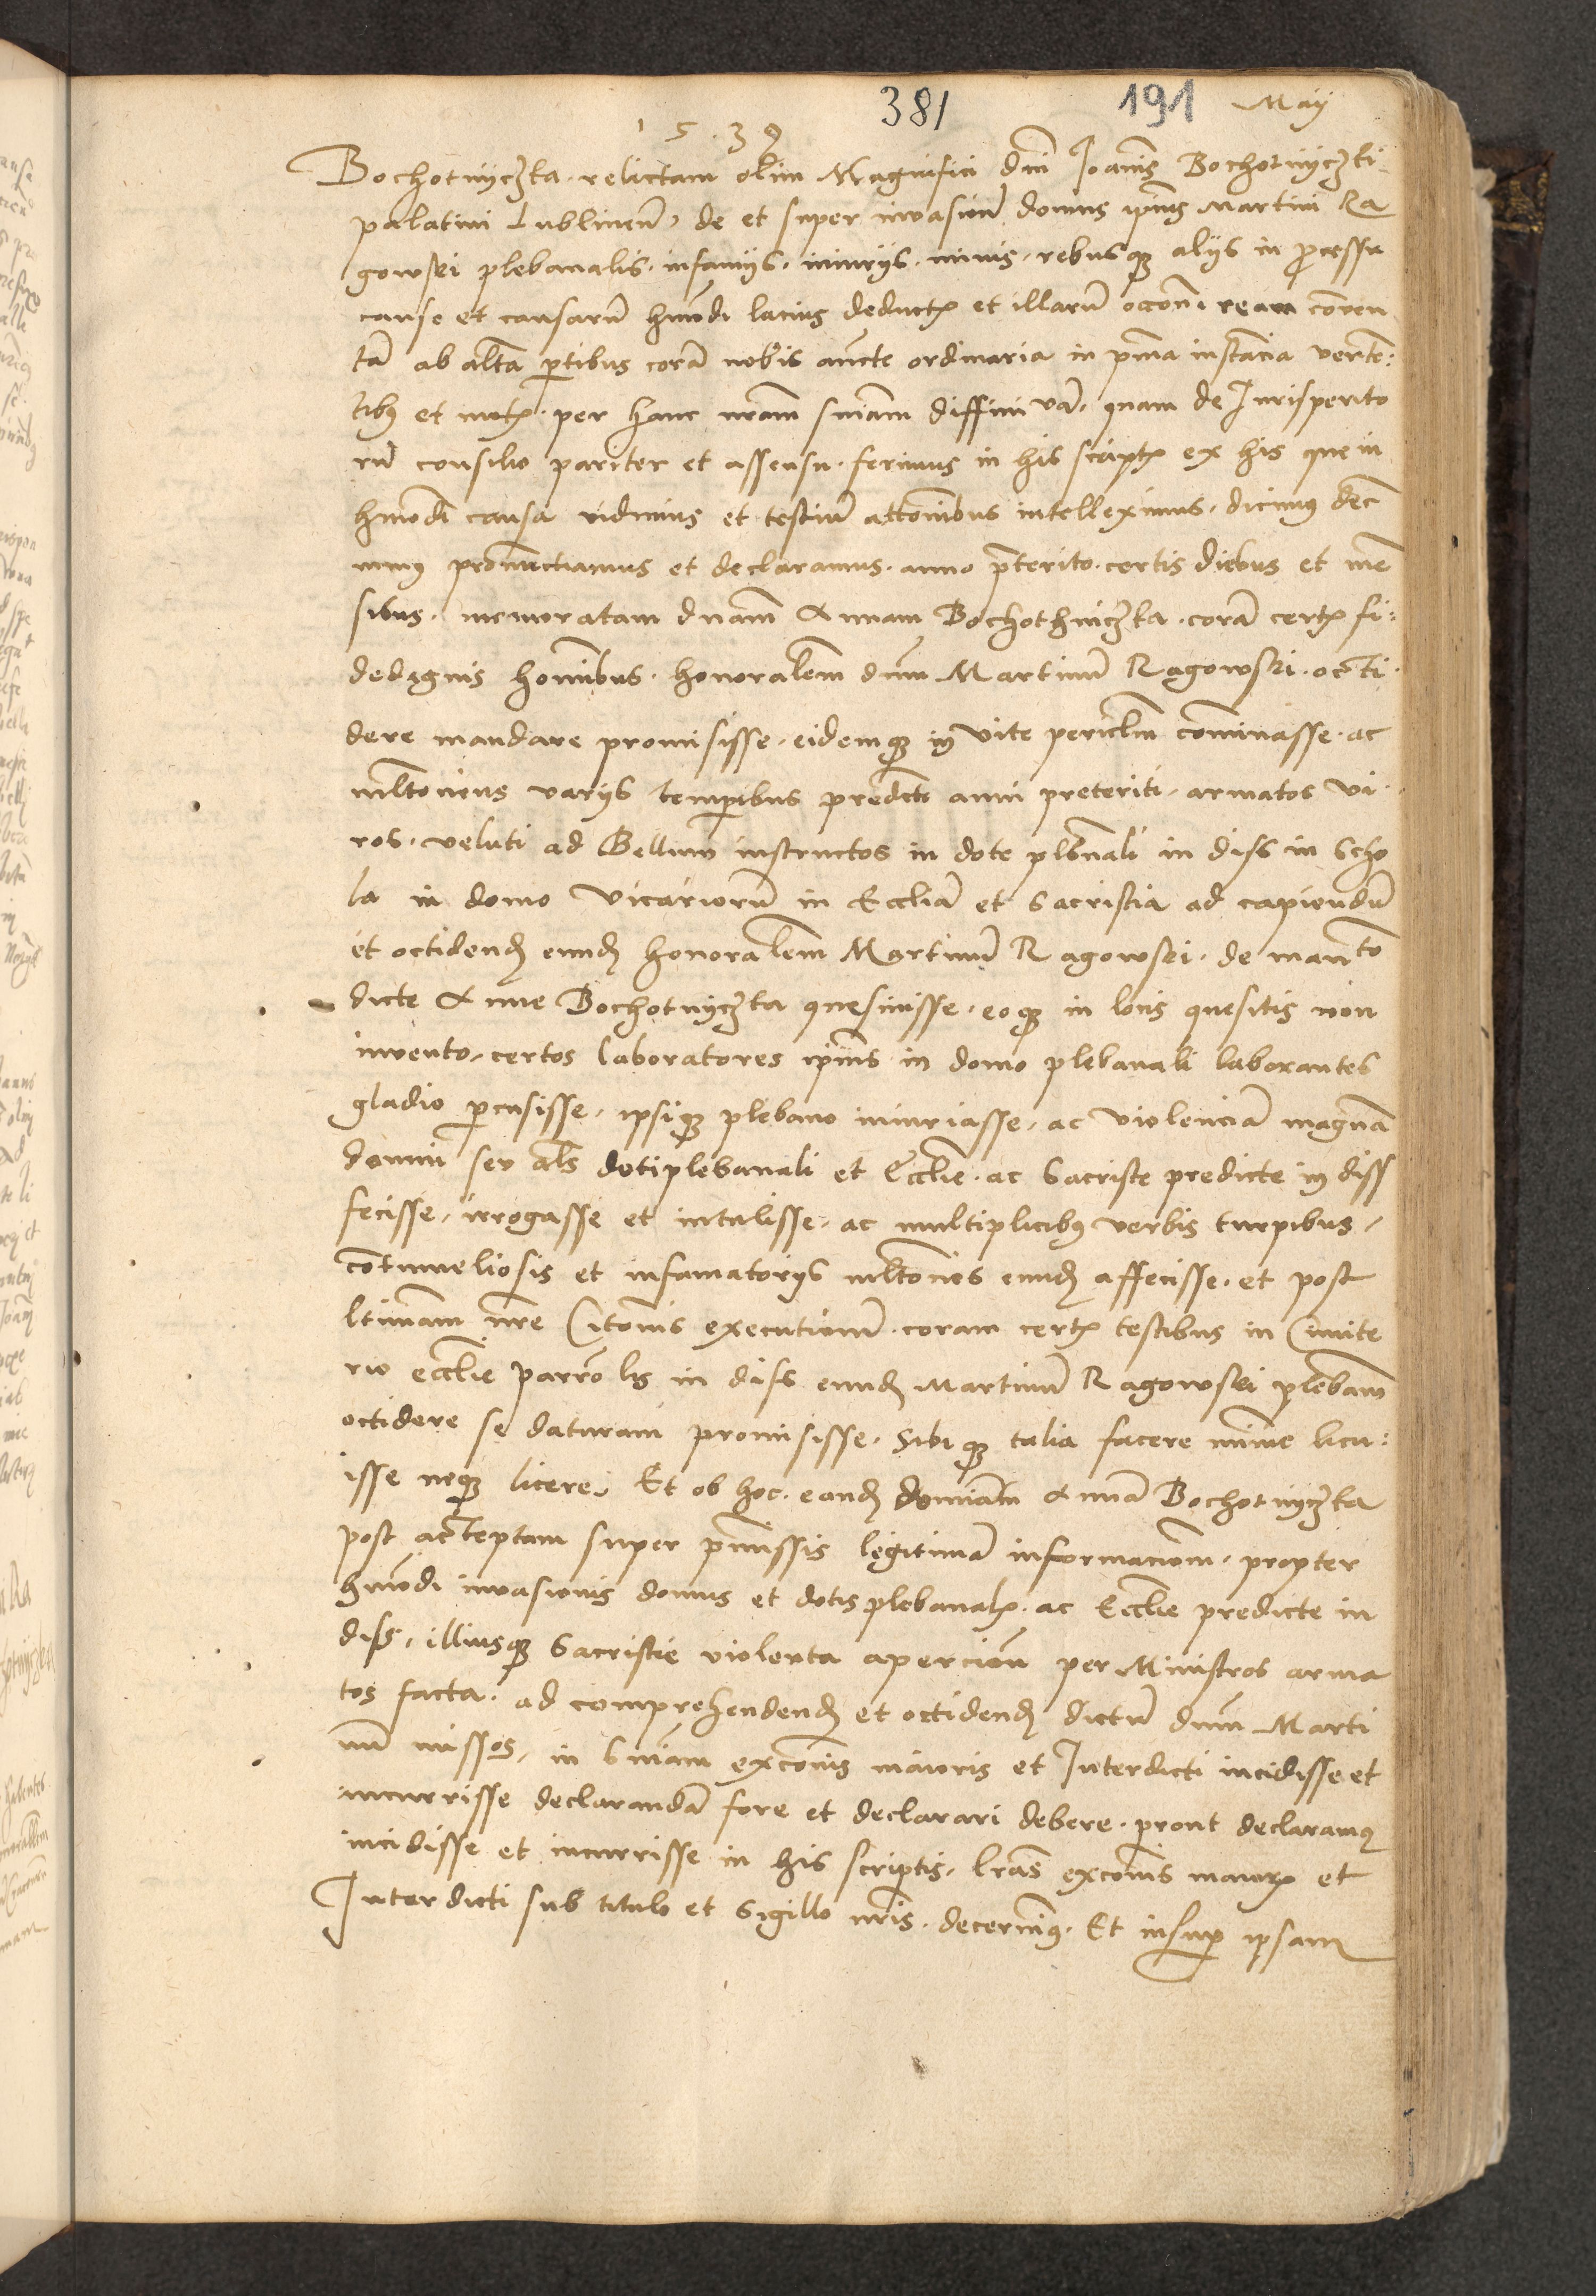 381 191 May
1 5 . 3 9
Bochotnyczka . relictam olim Magnifici dni Joanis Bochotnyczki
palatini Lublinen, de et super invasione domus ipius Martini Ra
gowski plebanalis . infamiis . iniuriis . minis . rebusq aliis in pcessu
cause et causaru hmodi latius deductis et illaru occoni ream conven
ta ab alta ptibus cora nobis aucte ordinaria in pma instancia verten:
tibus et motis . per hanc nram sniam diffinitiva . quam de Jurisperito
ru consilio pariter et assensu . ferimus in his scriptis ex his que in
hmodi causa vidimus et testiu attonibus intelleximus . dicimus dec
nimus pronunctiamus et declaramus . anno pterito . certis diebus et men
sibus . memoratam dnam Annam Bochothniczka . cora certis fi:
dedignis hominibus . honorablem dnum Martinu Ragowski . occi
dere mandare promisisse . eidemq in vite periclm cominasse . ac
mltociens variis temporibus predicti anni preteriti . armatos vi
ros . veluti ad Bellum instructos in dote plbnali in diss in Scho
la in domo vicarioru in Ecclia et Sacristia ad capiendu
et occidend eund honorablem Martinu Ragowski . de manto
dicte Anne Bochotnyczka quesivisse . eoq in locis quesitis non
invento . certos laboratores ipius in domo plebanali laborantes
gladio pcusisse . ipsiq plebano iniuriasse . ac violencia magna
domui seu als doti plebanali et Ecclie . ac Sacristie predicte in diss
fecisse . irrogasse et intulisse . ac multiplicibus verbis turpibus .
contumeliosis et infamatoriis mltocies eund affecisse . et post
ltimam nre Citonis executione . coram certis testibus in Cimite
rio ecclie parrolis in diss eund Martinu Ragowski plebanu
occidere se daturam promisisse . sibiq talia facere minime licu:
isse neq licere . Et ob hoc . eand dominam Anna Bochotnyczka
post acceptam super pmissis legitima informacionem . propter
hmodi invasionis domus et dotis plebanalis . ac Ecclie predicte in
diss . illiusq Sacristie violenta apercione per Ministros arma
tos facta . ad comprehendend et occidend dictu dnum Marti
nu missos . in Sniam exconis maioris et Interdicti incidisse et
incurrisse declaranda fore et declarari debere . prout declaramus
incidisse et incurrisse in his scriptis . lras exconis maioris et
Interdicti sub titulo et Sigillo nris . decernimus . Et insup ipsam